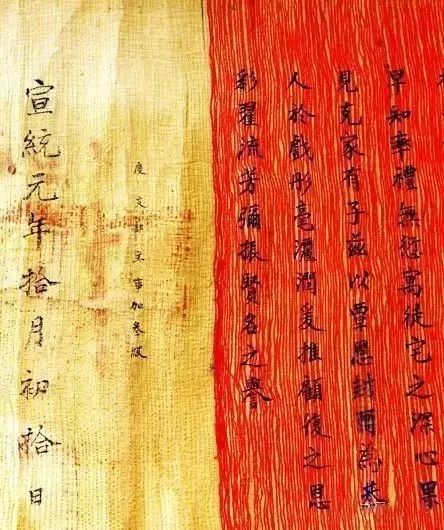 早知率禮無愆寓徙宅之深心果
見克家有子茲以覃恩封爾為恭
人於戲彤毫灑潤爰推顧復之恩
彩翟流芳彌振賢名之譽
度支部主事加叁級
宣統元年拾月初拾日